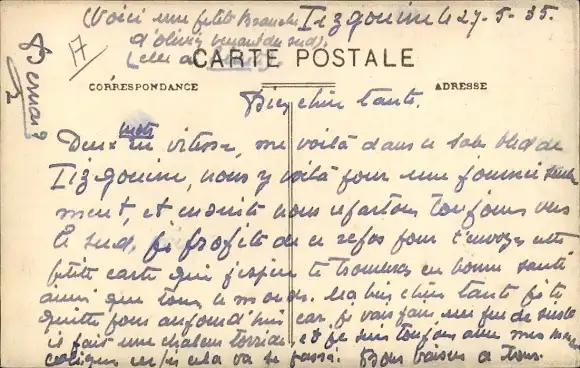 (Voici une petite Branche
d'olivier venant du sud).
Tizgouine le 27-5-35.
CARTE POSTALE
CORRESPONDANCE
ADRESSE
Bien chère tante.
Deux mots en vitesse, me voilà dans ce sale bled de
Tizgouine, nous y voilà pour une journée seule-
ment, et ensuite nous repartons toujours vers
le sud, je profite de ce repos pour t'envoyer cette
petite carte qui j'espère te trouvera en bonne santé
ainsi que tous le monde. Ma bien chère tante je te
quitte pour aujourd'hui car je vais faire un peu de sieste
il fait une chaleur torride, et je suis toujours avec mes
coliques enfin cela va se passé. Bons baisers a tous.